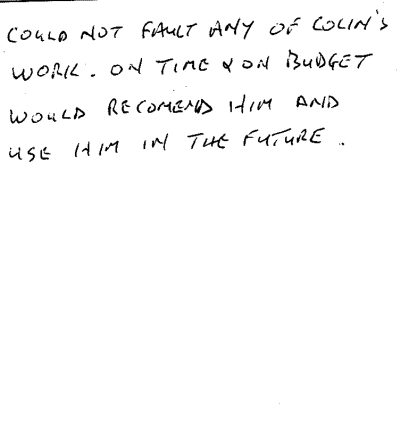 COULD NOT FAULT ANY OF COLIN'S
WORK. ON TIME & ON BUDGET
WOULD RECOMEND HIM AND
USE HIM IN THE FUTURE.